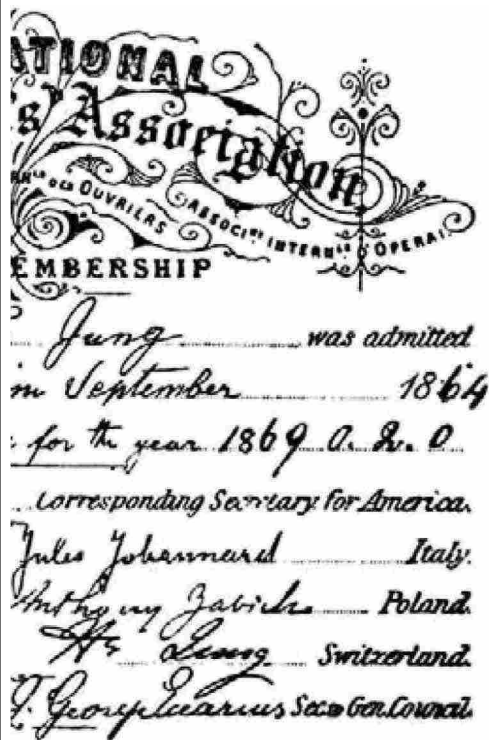 ATIONAL
's Association
RNLE DES OUVRIERS ASSOCINE INTERNLE D'OPERAI.
EMBERSHIP
Jung was admitted
in September 1864
for the year 1869 0. 2. 0
Corresponding Secretary for America.
Jules Johannard Italy.
Anthony Zabicki Poland.
Hn Jung Switzerland.
J. George Eccarius Sec. Gen. Council.